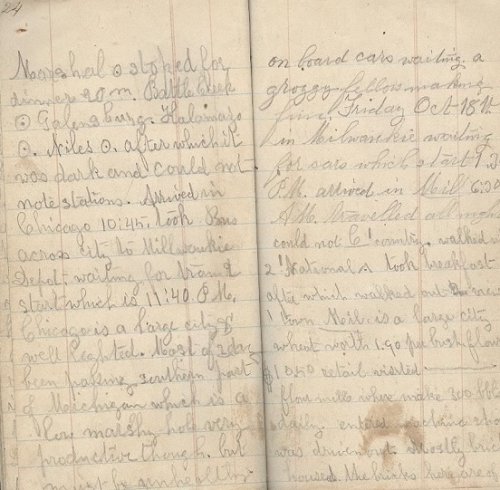 24
Marshal o stoped for
dinner 20 m. Battle Creek
o Galensburg. Kalamazo
o. Niles o. after which it
was dark and could not
note stations. Arrived in
Chicago 10:45. took Bus
across city to Millwaukie
Depot. waiting for train to
start which is 11:40 P.M.
Chicago is a large city &
well leighted. Most of day
been passing southern part
of Meichigan which is a
low marshy hole very
productive though. but
must be unhealthy
on board cars waiting. a
groggy fellow making
fun. Friday Oct 18
in Milwaukie waiting
for cars which start
P.M. arrived in Mill 6:
A.M. travelled all night
could not C country. walked
2 National took breakfast
after which walked out
town Mil. is a large city
wheat worth 1.90 per bush flour
$10.50 retail visited
flour mills where make 300 bbls
daily. entered
was driven out mostly brick
houses. the bricks here are